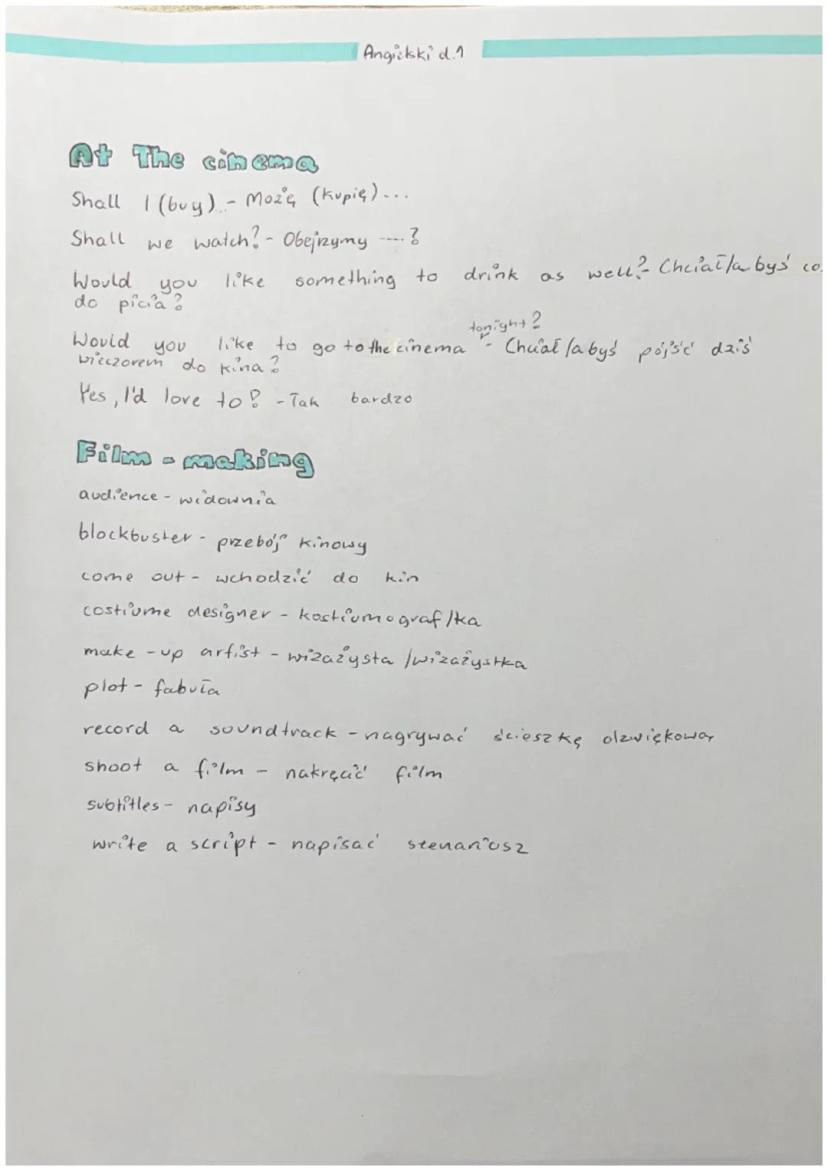 Angielski d.1
At The cinema
Shall I (buy) - Mozę (kupię)...
Shall we watch? - Obejrzymy ----?
Would you like something to drink as well? - Chciał/a byś co
do picia?
tonight?
Would you like to go to the cinema - Chciał/abyś pójść dziś
wieczorem do kina?
Yes, I'd love to! - Tak bardzo
Film - making
audience - widownia
blockbuster - przebój kinowy
come out - wchodzić do kin
costiume designer - kostiumograf/ka
make-up artist - wizażysta /wizażystka
plot - fabuła
record a soundtrack - nagrywać ścieszkę dzwiękową
shoot a film - nakręcić film
subtitles - napisy
write a script - napisać scenariosz